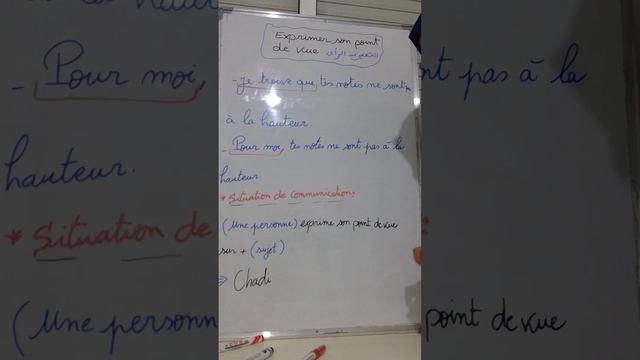 Exprimer son point
de vue التعبير عن الرأي
- Je trouve que, tes notes ne sont pas
à la hauteur.
- Pour moi, tes notes ne sont pas à la
hauteur.
* Situation de communication:
(Une personne) exprime son point de vue
sur + (sujet)
⇒ Chadi